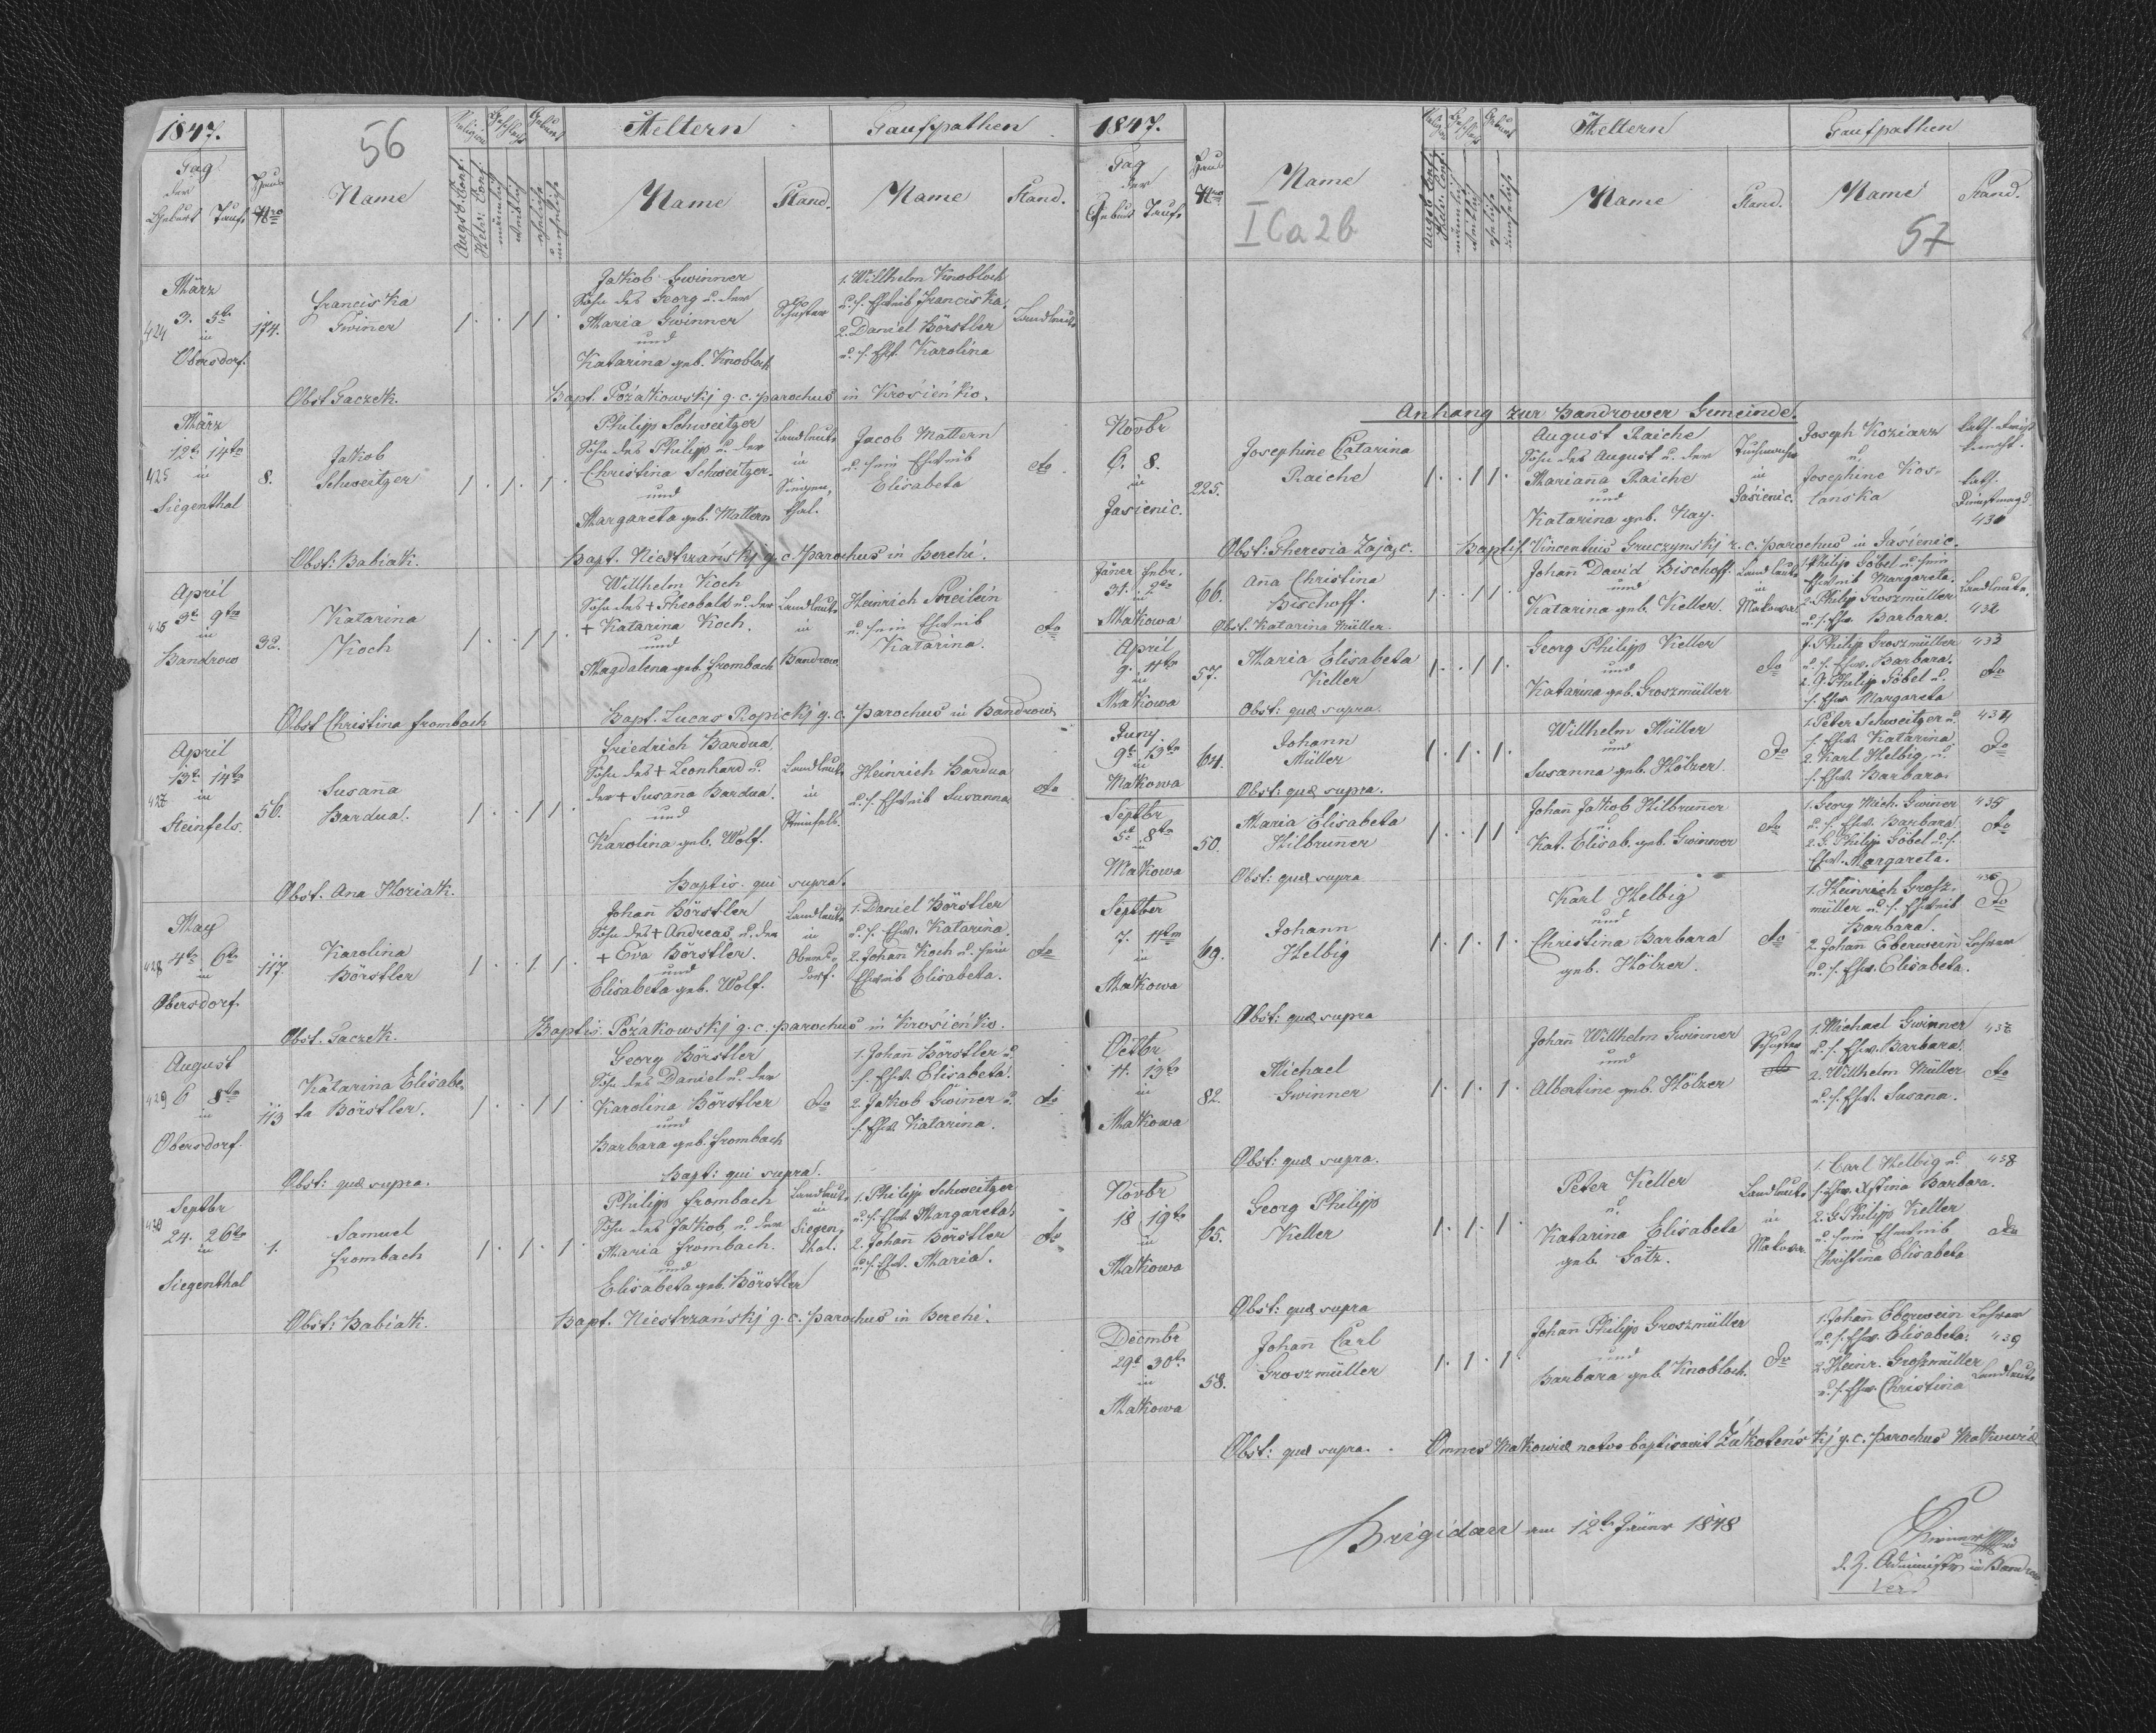 1847.
56
Religion
Geschlecht
Geburt
Aeltern
Taufpathen
Tag
der
Geburt Taufe
Haus
Nro
Name
Augsb. Conf.
Helv: Conf.
männlich
weiblich
ehelich
unehelich
Name
Stand.
Name
Stand.
März
3. 5te
in
Obersdorf.
424
174.
Franciska
Gwiner
1 . . 1 1 .
Jakob Gwinner
Sohn des Georg u. der
Maria Gwinner
und
Katarina geb. Knobloch
Schuster
1. Willhelm Knobloch
u. s. Ehweib Franciska.
2. Daniel Börstler
u. s. Ehw. Karolina
Landleute
Obst Gaczek.
Bapt. Pożakowskj g. c. parochus in Krośieńko.
März
12te 14te
in
Siegenthal
425
8.
Jakob
Schweitzer
1 . 1 . 1 .
Philipp Schweitzer
Sohn des Philipp u. der
Christina Schweitzer.
und
Margareta geb. Mattern
Landleute
in
Siegen,
thal.
Jacob Mattern
u. sein Ehweib
Elisabeta
do
Obst: Babiak.
Bapt. Niestrzańskj g. c. parochus in Berehi.
April
9te 9te
in
Bandrow
426
32.
Katarina
Koch
1 . . 1 1 .
Willhelm Koch
Sohn des + Theobald u. der
+ Katarina Koch.
und
Magdalena geb. Frombach
Landleute
in
Bandrow.
Heinrich Preilein
u. sein Ehweib
Katarina.
do
Obst Christina Frombach
Bapt. Lucas Ropickj g. c. parochus in Bandrow
April
13te 14te
in
Steinfels.
427
56.
Susanna
Bardua.
1 . . 1 1 .
Friedrich Bardua
Sohn des + Leonhard u.
der + Susanna Bardua.
und
Karolina geb. Wolf.
Landleute
in
Steinfels.
Heinrich Bardua
u. s. Ehweib Susanna
do
Obst. Ana Horiak.
Baptis. qui supra.
May
4te 6te
in
Obersdorf.
428
117.
Karolina
Börstler
1 . . 1 1 .
Johann Börstler
Sohn des + Andreas u. der
+ Eva Börstler.
und
Elisabeta geb. Wolf.
Landleute
in
Obers,
dorf.
1. Daniel Börstler
u. s. Ehw. Katarina.
2. Johann Koch u. sein
Ehweib Elisabeta.
do
Obst. Gaczek.
Baptis. Pożakowskj g. c. parochus in Krośieńko.
August
6 8te
in
Obersdorf.
429
113
Katarina Elisabe,
ta Börstler.
1 . . 1 1 .
Georg Börstler
Sohn des Daniel u. der
Karolina Börstler
und
Barbara geb. Frombach
do
1. Johann Börstler u.
s. Ehw. Elisabeta.
2. Jakob Gwiner u.
s. Ehw. Katarina.
do
Obst: quæ supra.
Bapt: qui supra.
Septbr
24. 26te
in
Siegenthal
430
1.
Samuel
Frombach
1 . 1 . 1 .
Philipp Frombach
Sohn des Jakob, u. der
Maria Frombach.
und
Elisabeta geb. Börstler
Landleute
in
Siegen,
thal.
1. Philipp Schweitzer
u. s. Ehw. Margareta.
2. Johann Börstler
u. s. Ehw. Maria.
do
Obst: Babiak.
Bapt. Niestrzańskj g. c. parochus in Berehi.
1847.
Tag
der
Geburt Taufe
Haus
Nro
Name
I Ca 2b
Aeltern
Taufpathen
Augsb. Conf.
Helv. Conf.
männlich
weiblich
ehelich
unehelich
Name
Stand.
Name
Stand.
57
Anhang zur Bandrower Gemeinde.
Novbr
6. 8.
in
Jasienic.
225.
Josephine Catarina
Raiche
1 . . 1 1 .
August Raiche
Sohn des August u. der
Mariana Raiche
und
Katarina geb. Kay.
Tuchmacher
in
Jasienic.
Joseph Koziarz
u.
Josephine Kos-
tanska
kath. Dienst
knecht.
kath.
Dienstmagd
431
Obst: Theresia Zając.
Baptis. Vincentius Gruczynskj r. c. parochus in Jasienic.
Jäner Febr.
31. 2te
in
Makowa
66.
Anna Christina
Bischoff.
1 . . 1 1 .
Johann David Bischoff.
und
Katarina geb. Keller.
Landleute
in
Makowa
1. Philip Göbel u. sein
Ehweib Margareta.
2. Philip Groszmüller
u. s. Ehw. Barbara.
Landleute.
432
Obst. Katarina Müller.
April
9. 11te
in
Makowa
57.
Maria Elisabeta
Keller
1 . . 1 1 .
Georg Philipp Keller
und
Katarina geb. Groszmüller
do
1. Philip Groszmüller
u. s. Ehw. Barbara.
2. G. Philip Göbel u.
s. Ehw. Margareta
433
do
Obst: quæ supra.
Juny
9te 13te
in
Makowa
64.
Johann
Müller
1 . 1 . 1 .
Willhelm Müller
und
Susanna geb. Hölzer.
do
1. Peter Schweitzer u.
s. Ehw. Katarina
2. Karl Helbig, u.
s. Ehw. Barbara
434
do
Obst: quæ supra.
Septbr
5te 8te
in
Makowa
50.
Maria Elisabeta
Hilbruner
1 . . 1 1 .
Johann Jakob Hilbrunner
u.
Kat. Elisab. geb. Gwinner
do
1. Georg Mich. Gwiner
u. s. Ehw. Barbara
2. G. Philip Göbel u. s.
Ehw. Margareta.
435
do
Obst: quæ supra
Septber
7. 11tm
in
Makowa
69.
Johann
Helbig
1 . 1 . 1 .
Karl Helbig
und
Christina Barbara
geb. Hölzer.
do
1. Heinrich Grosz,
müller u. s. Ehweib
Barbara.
2. Johann Eberwein
u. s. Ehw. Elisabeta.
436
do
Lehrer
Obst: quæ supra
Octbr
11. 13te
in
Makowa
82.
Michael
Gwinner
1 . 1 . 1 .
Johann Willhelm Gwinner
und
Albertine geb. Hölzer
Schuster
do
1. Michael Gwinner
u. s. Ehw. Barbara.
2. Willhelm Müller
u. s. Ehw. Susana.
437
do
Obst: quæ supra.
Novbr
18 19te
in
Makowa
65.
Georg Philipp
Keller
1 . 1 . 1 .
Peter Keller
u.
Katarina Elisabeta
geb. Götz.
Landleute
in
Makowa.
1. Carl Helbig u.
s. Ehw. Xstina Barbara.
2. G. Philipp Keller
u. sein Eheweib
Christina Elisabeta
438
do
Obst: quæ supra
Decmbr
29te 30te
in
Makowa
58.
Johann Carl
Groszmüller
1 . 1 . 1 .
Johann Philipp Groszmüller
und
Barbara geb. Knobloch.
do
1. Johann Eberwein
u. s. Ehw. Elisabeta.
2. Heinr. Groszmüller
u. s. Ehw. Christina
Lehrer
439
Landleute
Obst: quæ supra. . Omnes Makowiæ natos baptisavit Zakoteńskj g. c. parochus Makowiæ
Brigidau am 12te Jäner 1848
d. Z. Administr. in Bandrow.